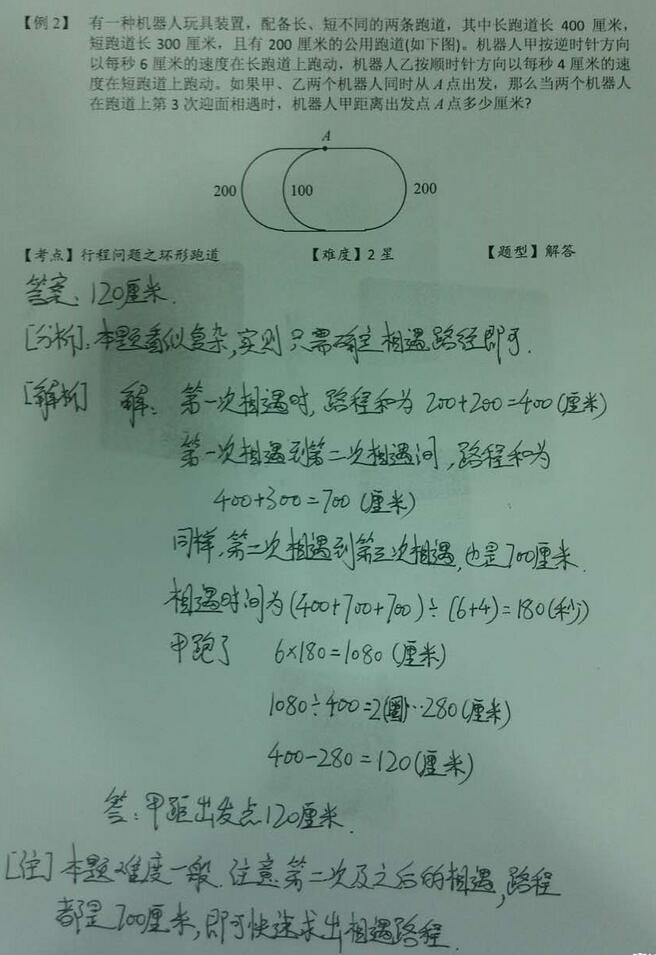 【例2】 有一种机器人玩具装置，配备长、短不同的两条跑道，其中长跑道长 400 厘米，
短跑道长 300 厘米，且有 200 厘米的公用跑道(如下图)。机器人甲按逆时针方向
以每秒 6 厘米的速度在长跑道上跑动，机器人乙按顺时针方向以每秒 4 厘米的速
度在短跑道上跑动。如果甲、乙两个机器人同时从 A 点出发，那么当两个机器人
在跑道上第 3 次迎面相遇时，机器人甲距离出发点 A 点多少厘米？
A
200 100 200
【考点】行程问题之环形跑道 【难度】2 星 【题型】解答
答案：120厘米.
[分析]：本题看似复杂,实则只需确定相遇路径即可.
[解析] 解：第一次相遇时,路程和为 200+200=400(厘米)
第一次相遇到第二次相遇间,路程和为
400+300=700 (厘米)
同样,第二次相遇到第三次相遇,也是700厘米.
相遇时间为(400+700+700)÷(6+4)=180(秒)
甲跑了 6×180=1080 (厘米)
1080÷400=2(圈)…280(厘米)
400-280=120(厘米)
答：甲距出发点120厘米.
[注] 本题难度一般.注意第二次及之后的相遇,路程
都是700厘米,即可快速求出相遇路程.